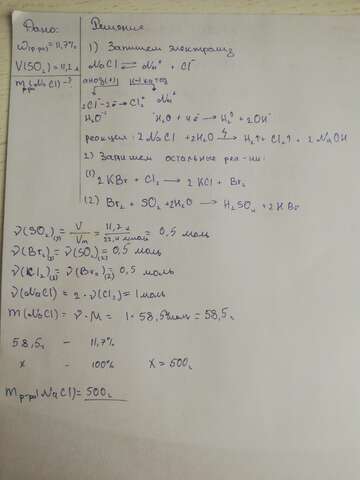 Дано:
ω(р.ра)=11,7%
V(SO₂)=11,2 л
m р-ра(NaCl)-?
Решение
1) Запишем электролиз
NaCl ⇌ Na⁺ + Cl⁻
анод(+) (-)катод
2Cl⁻-2e → Cl₂⁰ Na⁺
H₂O H₂O + 4e → H₂⁰ + 2OH⁻
реакция: 2NaCl + 2H₂O → H₂↑ + Cl₂↑ + 2NaOH
2) Запишем остальные реа-ции:
(1) 2KBr + Cl₂ → 2KCl + Br₂
(2) Br₂ + SO₂ + 2H₂O → H₂SO₄ + 2HBr
ν(SO₂)₍₂₎ = V/Vm = 11,2 л/22,4 л/моль = 0,5 моль
ν(Br₂)=ν(SO₂)₍₂₎ 0,5 моль
ν(Cl₂)=ν(Br₂)₍₂₎ 0,5 моль
ν(NaCl) = 2·ν(Cl₂) = 1 моль
m(NaCl) = ν·M = 1·58,5 г/моль = 58,5 г
58,5 г - 11,7%
x - 100% x = 500 г
m р-ра(NaCl) = 500 г